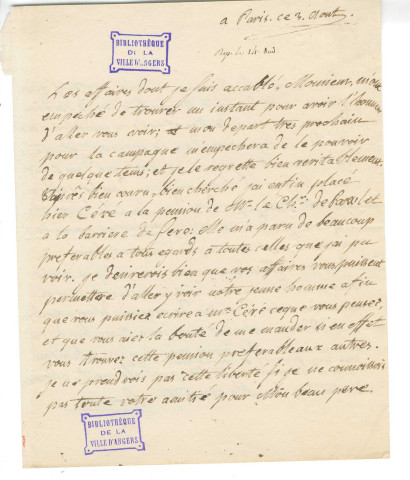 a Paris. ce 3. Aout.
BIBLIOTHÈQUE
DE LA
VILLE D'ANGERS
Les affaires dont je suis accablé, Monsieur, m'ont
empéché de trouver un instant pour avoir l'honneur
d'aller vous voir; et mon depart tres prochain
pour la campagne m'empechera de le pouvoir
de quelque tems; et je le regrette bien veritablement.
Aprés bien couru, bien cherché j'ai enfin placé
hier Céré a la pension de Mr. le Chr. de
a la barriere de : elle m'a paru de beaucoup
preferables a tous egards a toutes celles que j'ai pu
voir. je desirerois bien que vos affaires vous puissent
permettre d'aller y voir notre jeune homme afin
que vous puissiez ecrire a mr. Céré ce que vous pensez,
et que vous aiez la bonté de me mander si en effet
vous trouvez cette pension preferable aux autres.
je ne prendrois pas cette liberté si je ne connoissois
pas toute votre amitié pour Mon beau pere
BIBLIOTHÈQUE
DE LA
VILLE D'ANGERS